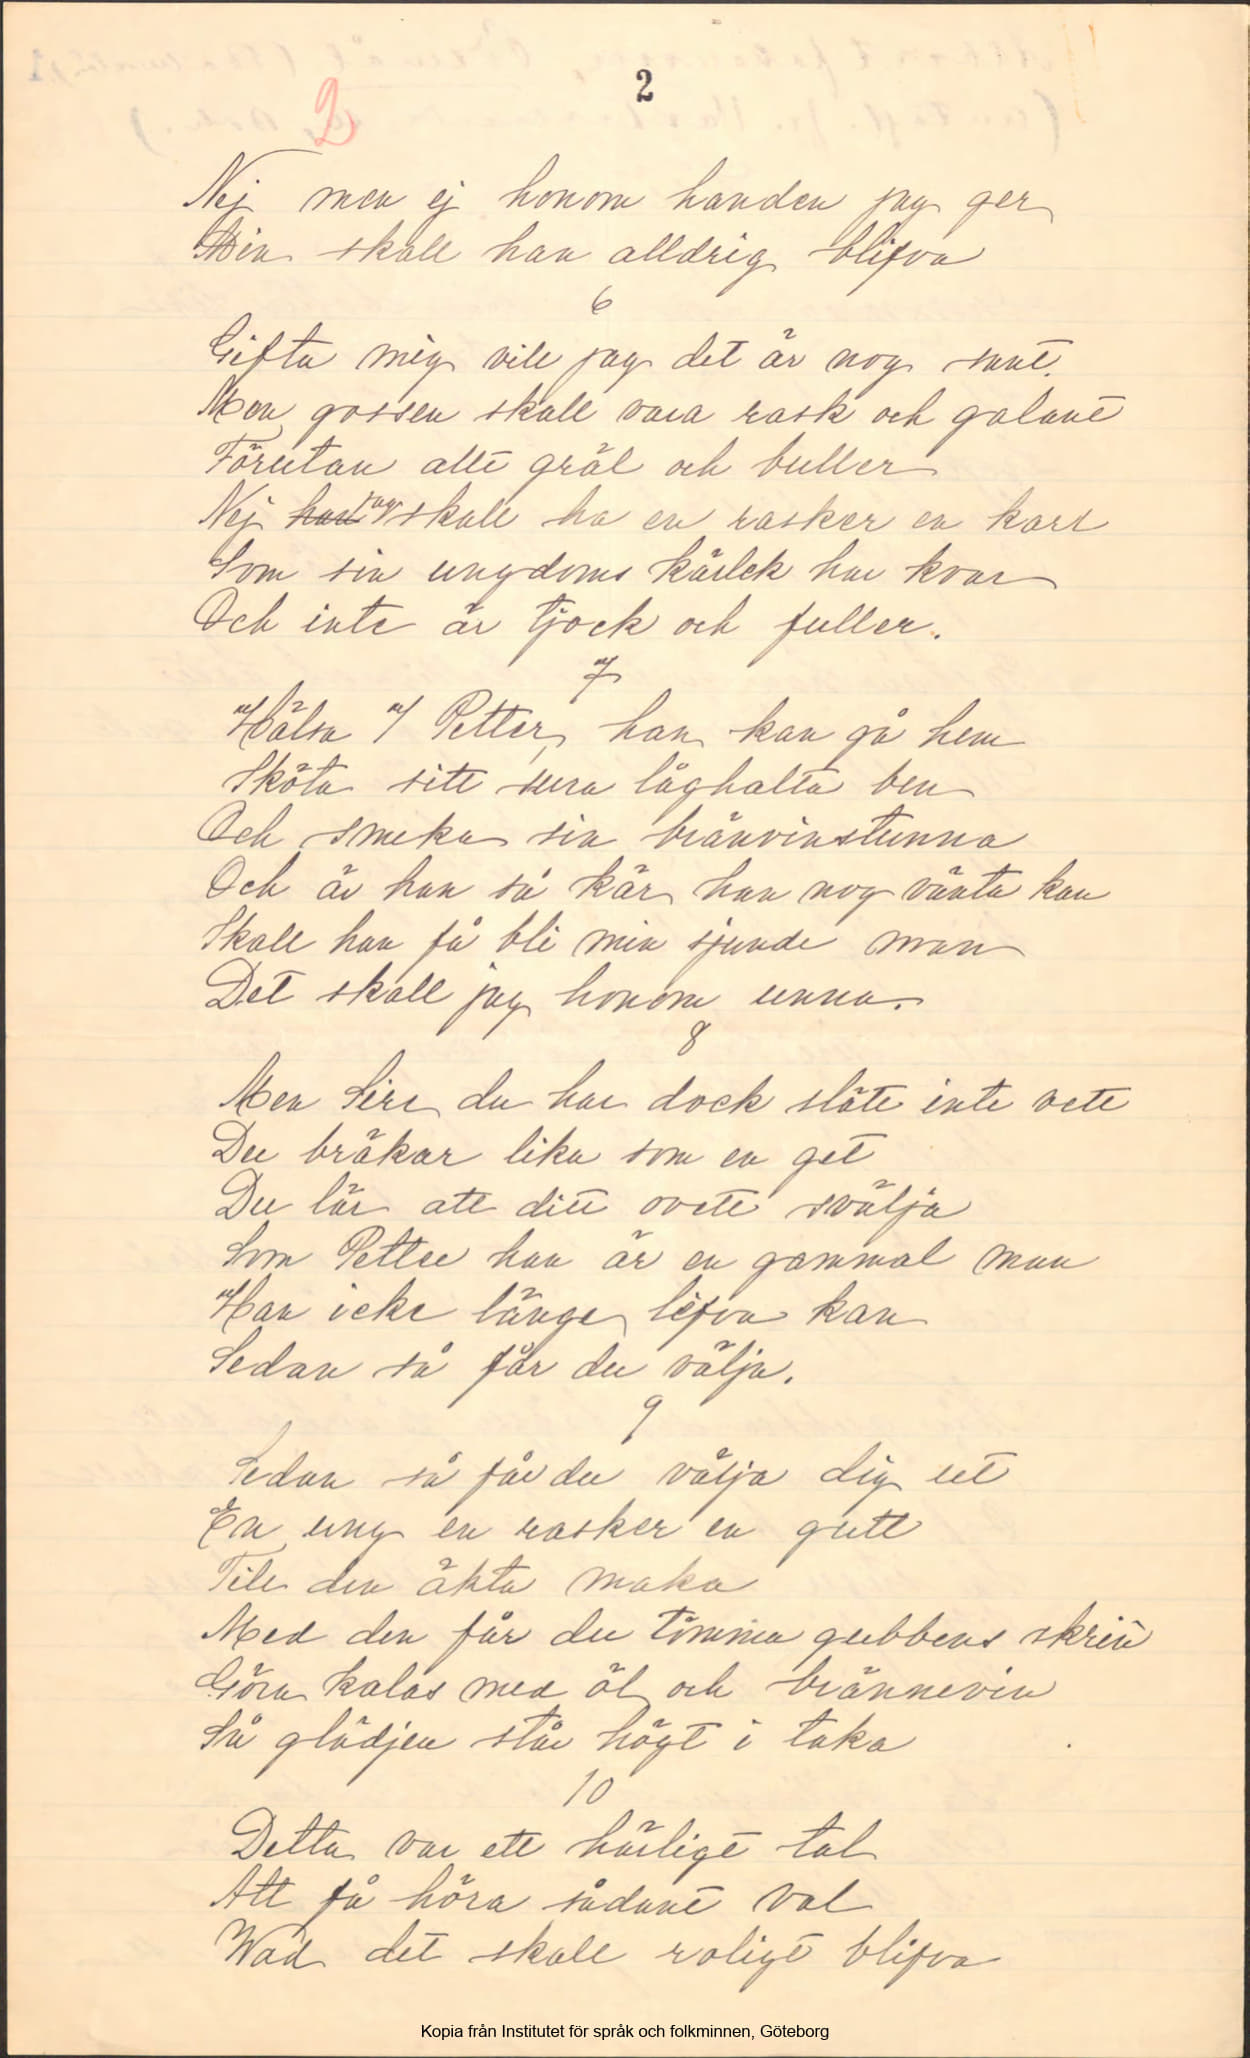 2
2
Nej men ej honom handen jag ger
Min skall han alldrig blifva
6
Gifta mig vill jag det är nog sant.
Men gossen skall vara rask och galant
Förutan allt gräl och buller
Nej han jag skall ha en rasker en karl
Som sin ungdoms kärlek har kvar
Och inte är tjock och fuller.
7
Hälsa Petter, han kan gå hem
Sköta sitt sura låghalta ben
Och smeka sin bränvinstunna
Och är han så kär han nog vänta kan
Skall han få bli min sjunde man
Det skall jag honom unna.
8
Men Siri du har dock slätt inte vett
Du bräkar lika som en get
Du lär att ditt ovett svälja
Som Petter han är en gammal man
Han icke länge lefva kan
Sedan så får du välja.
9
Sedan så får du välja dig ut
En ung en rasker en gutt
Till den äkta maka
Med den får du tömma gubbens skrin
Göra kalas med öl och brännevin
Så glädjen står högt i taka
10
Detta var ett härligt tal
Att få höra sådant val
Wad det skall roligt blifva
Kopia från Institutet för språk och folkminnen, Göteborg